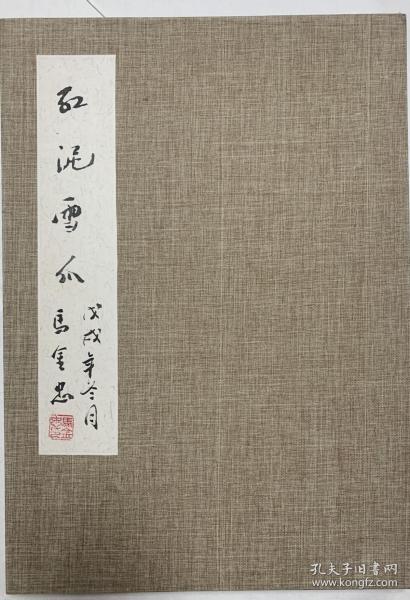 红泥雪爪
戊戌年冬月
馬金忠
孔夫子旧书网
www.kongfz.com